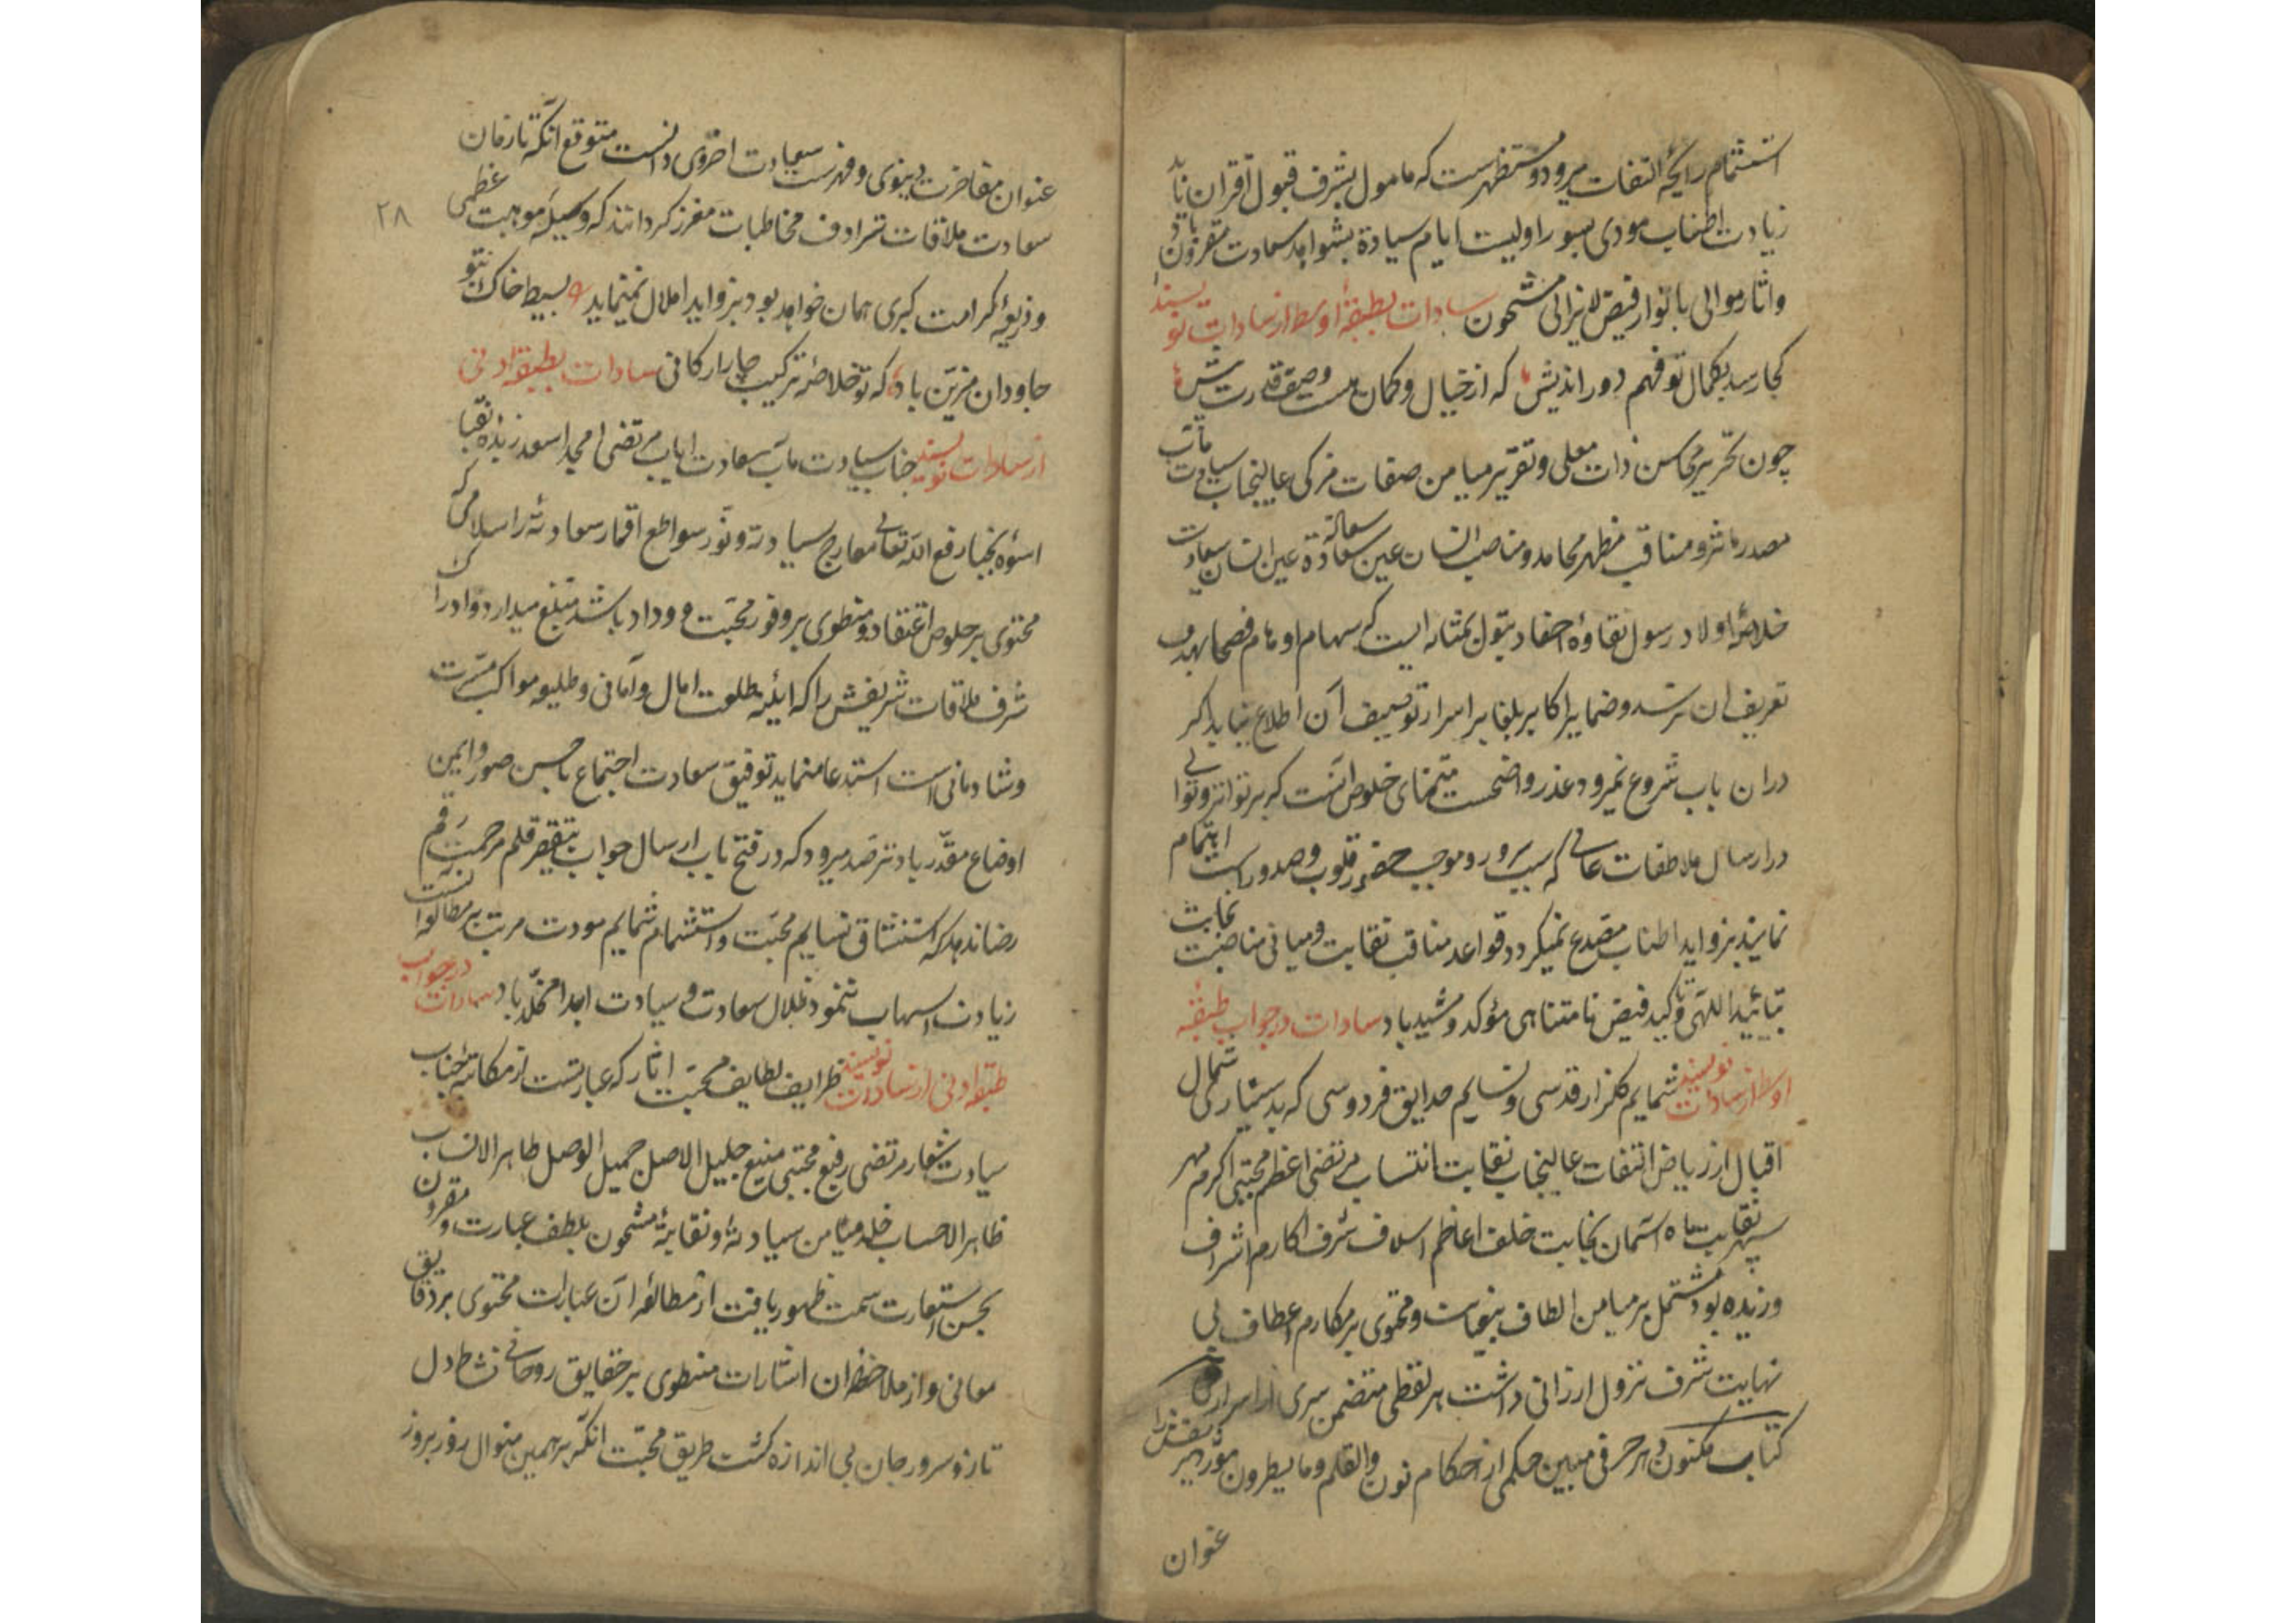 استشمام رایحهٔ التفات میرود و مستظهرست که مامول بشرف قبول اقتران یابد
زیادت اطناب مودی بسو اولیت ایام سیادة بشواهد سعادت مقرون باد
واثار موالی بانوار فیض لایزالی مشحون سادات بطبقهٔ اوسط از سادات نویسند
کجا رسد بکمال تو فهم دور اندیش که از خیال و کمان هست وصف قدرت بیش
چون تحریر محاسن ذات معلی و تقریر میامن صفات مزکی عالیجناب سیادت مآب
مصدر مآثر و مناقب مظهر محامد و مناصب انسان عین سعادة عین انسان سیادت
خلاصهٔ اولاد رسول نقاوهٔ احفاد بتول بمثابه ایست که سهام اوهام فصحا بهدف
تعریف ان نرسد و ضمایر اکابر بلغا بر اسرار توصیف آن اطلاع نیابد اگر
دران باب شروع نمیرود عذر واضحست متمنای خلوص آنست که بر تواتر و توالی
در ارسال ملاطفات عالی که سبب سرور و موجب حضور قلوب و صدورست اهتمام
نمایند بزواید اطناب مصدع نمیگردد قواعد مناقب نقابت و مبانی مناصب نجابت
بتائید اللهی و تاکید فیض نامتناهی مؤکد و مشید باد سادات در جواب طبقهٔ
اوسط از سادات نویسند شمایم گلزار قدسی و نسایم حدایق فردوسی که بدستیاری شمال
اقبال از ریاض التفات عالیجناب نقابت انتساب مرتضی اعظم مجتبی اکرم مهر
سپهر نقابت ماه آسمان نجابت خلف اعاظم اسلاف شرف اکارم اشراف
وزیده بود مشتمل بر میامن الطاف بیغایت و محتوی بر مکارم اعطاف بی
نهایت شرف نزول ارزانی داشت هر لفظی متضمن سری از اسرار
کتاب مکنون و هر حرفی مبین حکمی از احکام نون والقلم وما یسطرون
عنوان
۲۸
عنوان مفاخرت دینوی و فهرست سعادت اخروی دانست متوقع آنکه تا زمان
سعادت ملاقات ترادف مخاطبات مفرز کردانند که وسیلهٔ موهبت عظمی
و ذریعهٔ کرامت کبری همان خواهد بود بزواید املال نمینماید بسیط خاک بتو
جاودان مزین باد که تو خلاصهٔ ترکیب چار ارکانی سادات بطبقه ادنی
از سادات نویسند جناب سیادت مآب سعادت ایاب مرتضی امجد اسعد زبدهٔ نقبا
اسوهٔ نجبا رفع الله تعالی معارج سیادته و نور سواطع اقمار سعادته را سلامی که
محتوی بر خلوص اعتقاد و منطوی بر وفور محبت و وداد باشد متبلغ میدارد و ادراک
شرف ملاقات شریفش را که آینهٔ طلعت امال و آمانی و طلیعه مواکب مسرت
و شادمانی است استدعا مینماید توفیق سعادت اجتماع باحسن صور و ایمن
اوضاع مقدر باد ترصد میرود که در فتح باب ارسال جواب بتقصیر قلم مرحمت رقم
رضا ندهد که استنشاق نسایم محبت و استشمام شمایم مودت مرتب بر مطالعه آنست
زیادت اسهاب ننمود ظلال سعادت و سیادت ابدا مخلد باد سادات در جواب
طبقه ادنی از سادات نویسند ظرایف لطایف محبت اثار که عبارتست از مکاتبهٔ جناب
سیادت شعار مرتضی رفیع مجتبی منیع جلیل الاصل جمیل الوصل طاهر الانساب
ظاهر الاحساب خلد میامن سیادته و نقابته مشحون بلطف عبارت و مقرون
بحسن استعارت سمت ظهور یافت از مطالعهٔ آن عبارات محتوی بر دقایق
معانی و از ملاحظهٔ ان اشارات منطوی بر حقایق روحانی نشاط دل
تازه و سرور جان بی اندازه کشت طریق محبت آنکه بر همین منوال روز بروز